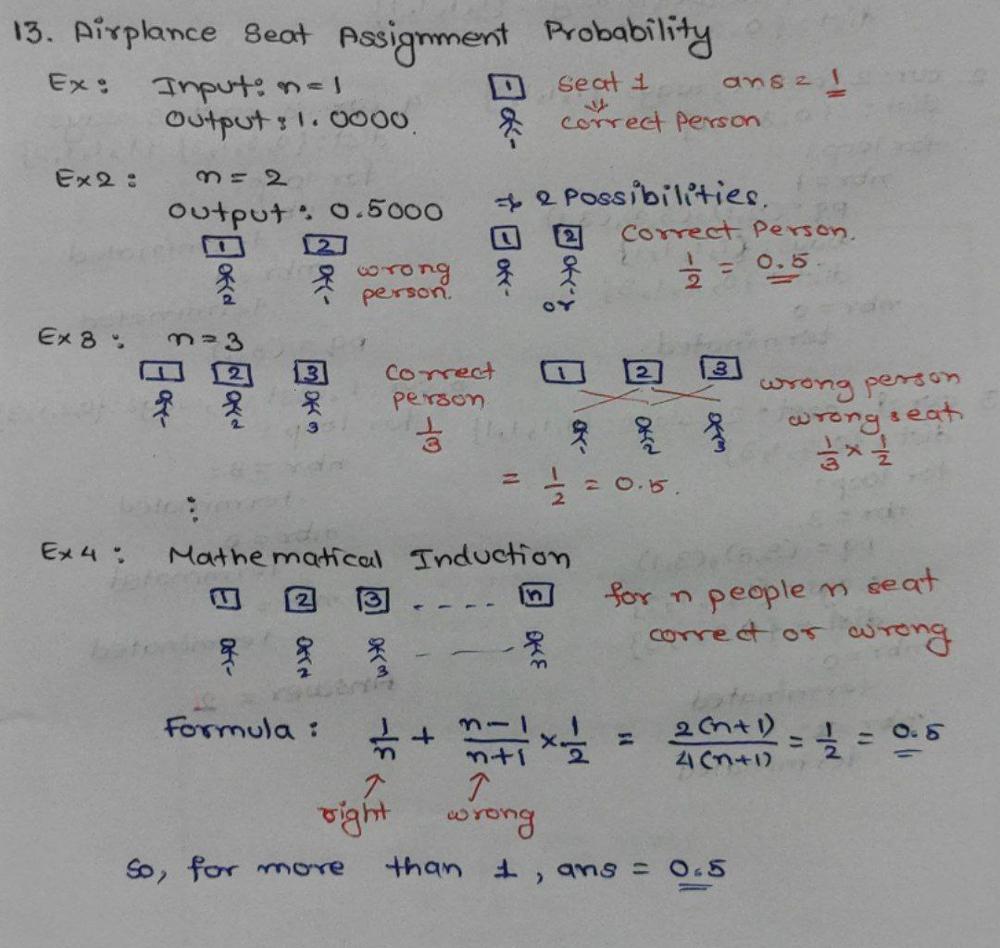 13. Airplance Seat Assignment Probability
Ex: Input: n=1 1 seat 1 ans = 1
Output: 1.0000. 1 ⇓ correct person
Ex2: n=2
Output: 0.5000 ⇒ 2 Possibilities.
1 2 1 2 correct Person.
2 1 wrong person. 1 1 1/2 = 0.5
or
Ex 3: n=3
1 2 3 correct person 1 2 3 wrong person
1 2 3 1/3 1 2 3 wrong seat
1/3 × 1/2
= 1/2 = 0.5.
⋮
Ex 4: Mathematical Induction
1 2 3 ---- n for n people n seat
1 2 3 - — n correct or wrong
Formula: 1/n + n-1/n+1 × 1/2 = 2(n+1)/4(n+1) = 1/2 = 0.5
↑ right ↑ wrong
So, for more than 1, ans = 0.5